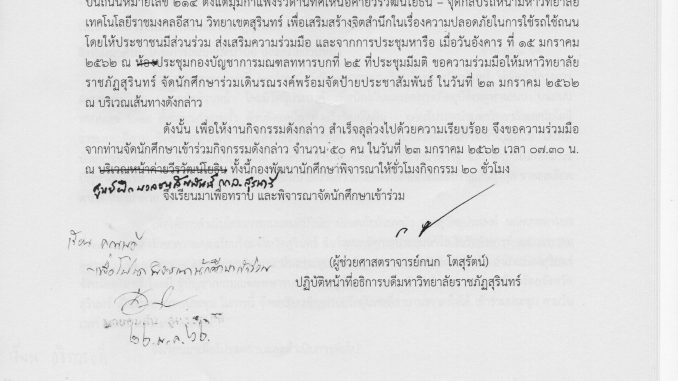 บนถนนหมายเลข ๒๑๔ ตั้งแต่มุมกำแพงรั้วด้านทิศเหนือค่ายวีรวัฒน์โยธิน – จุดกลับรถหน้ามหาวิทยาลัย
เทคโนโลยีราชมงคลอีสาน วิทยาเขตสุรินทร์ เพื่อเสริมสร้างจิตสำนึกในเรื่องความปลอดภัยในการใช้รถใช้ถนน
โดยให้ประชาชนมีส่วนร่วม ส่งเสริมความร่วมมือ และจากการประชุมหารือ เมื่อวันอังคาร ที่ ๑๕ มกราคม
๒๕๖๒ ณ ห้องประชุมกองบัญชาการมณฑลทหารบกที่ ๒๕ ที่ประชุมมีมติ ขอความร่วมมือให้มหาวิทยาลัย
ราชภัฏสุรินทร์ จัดนักศึกษาร่วมเดินรณรงค์พร้อมจัดป้ายประชาสัมพันธ์ ในวันที่ ๒๓ มกราคม ๒๕๖๒
ณ บริเวณเส้นทางดังกล่าว
ดังนั้น เพื่อให้งานกิจกรรมดังกล่าว สำเร็จลุล่วงไปด้วยความเรียบร้อย จึงขอความร่วมมือ
จากท่านจัดนักศึกษาเข้าร่วมกิจกรรมดังกล่าว จำนวน ๕๐ คน ในวันที่ ๒๓ มกราคม ๒๕๖๒ เวลา ๐๗.๓๐ น.
ณ บริเวณหน้าค่ายวีรวัฒน์โยธิน ทั้งนี้กองพัฒนานักศึกษาพิจารณาให้ชั่วโมงกิจกรรม ๒๐ ชั่วโมง
จึงเรียนมาเพื่อทราบ และพิจารณาจัดนักศึกษาเข้าร่วม
(ผู้ช่วยศาสตราจารย์กนก โตสุรัตน์)
ปฏิบัติหน้าที่อธิการบดีมหาวิทยาลัยราชภัฏสุรินทร์
เรียน คณบดี